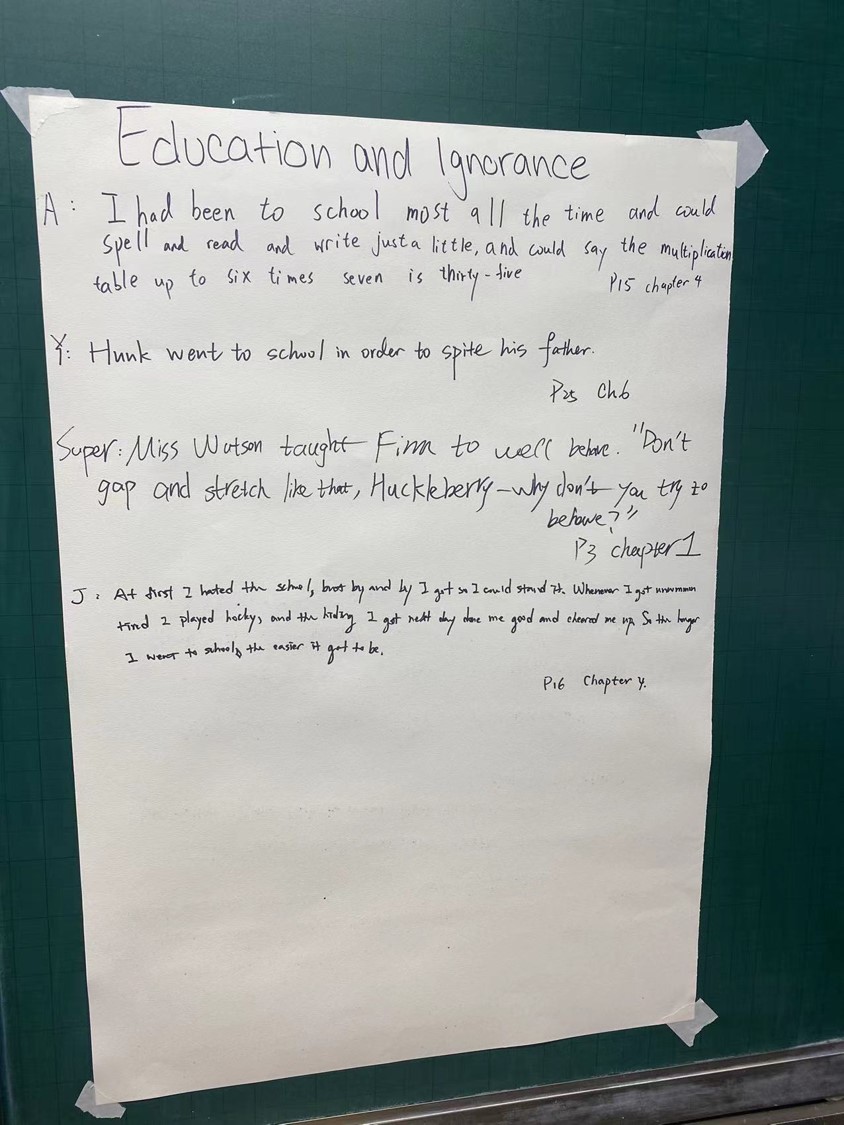 Education and Ignorance
A: I had been to school most all the time and could
spell and read and write just a little, and could say the multiplication
table up to six times seven is thirty-five
P15 chapter 4
Y: Hunk went to school in order to spite his father.
P25 Ch.6
Super: Miss Watson taught Finn to well behave. "Don't
gap and stretch like that, Huckleberry - why don't you try to
behave?"
P3 chapter 1
J: At first I hated the school, but by and by I got so I could stand it. Whenever I got
tired I played hooky, and the hiding I got next day done me good and cheered me up. So the longer
I went to school, the easier it got to be.
P16 Chapter 4.